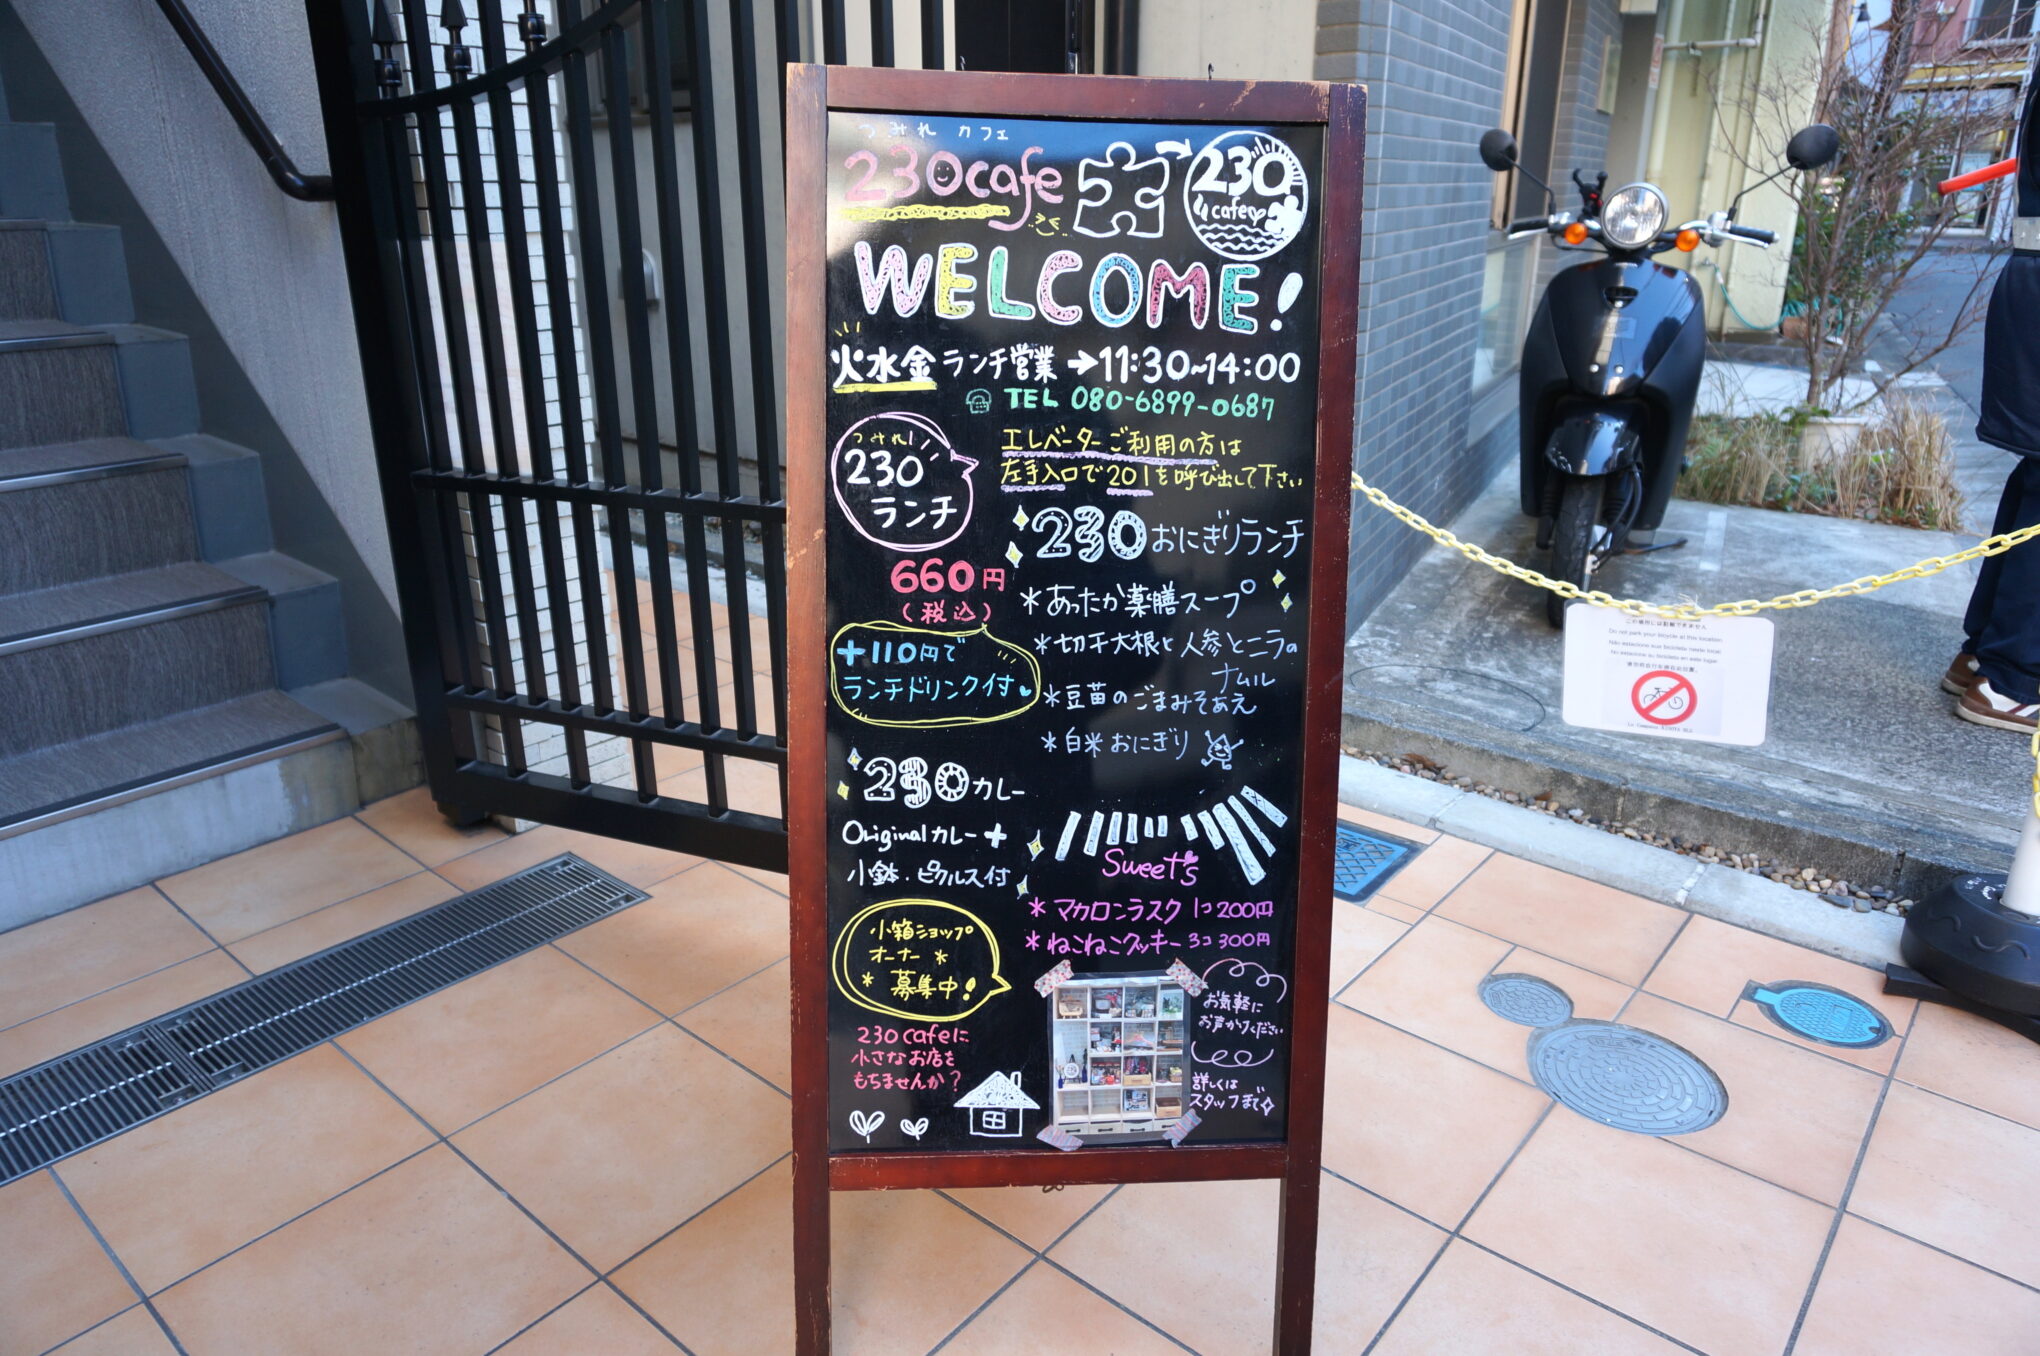 つみれ カフェ
230cafe
230
cafe
WELCOME!
火水金 ランチ営業 → 11:30~14:00
TEL 080-6899-0687
エレベーターご利用の方は
左手入口で201を呼び出して下さい
つみれ!
230
ランチ
660円
(税込)
+110円で
ランチドリンク付
230おにぎりランチ
*あったか薬膳スープ
*切干大根と人参とニラの
ナムル
*豆苗のごまみそあえ
*白米おにぎり
230カレー
Originalカレー+
小鉢・ピクルス付
Sweet's
*マカロンラスク 1コ200円
*ねこねこクッキー 3コ 300円
小箱ショップ
オーナー *
* 募集中!
230cafeに
小さなお店を
もちませんか?
お気軽に
お声かけください
詳しくは
スタッフまで
この場所には駐輪できません
Do not park your bicycle at this location
Não estacione sua bicicleta neste local
No estacione su bicicleta en este lugar